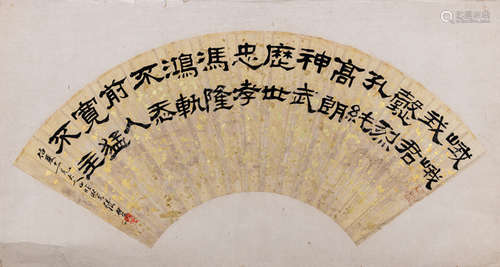 峨峨
我君
懿烈
孔純
高朗
神武
歷世
忠孝
馮隆
鴻軌
不忝
前人
寬猛
不主